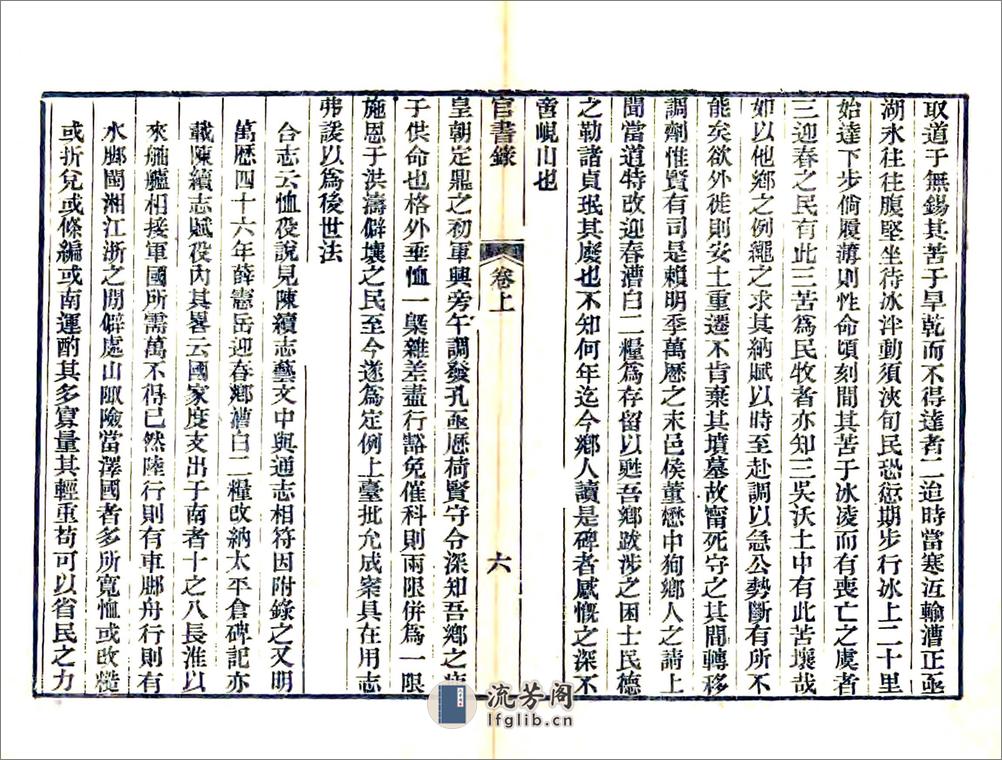 取道于無錫其苦于旱乾而不得達者二迨時當寒沍輸漕正亟
湖氷往往腹堅坐待冰泮動須浹旬民恐愆期步行冰上二十里
始達下步倘履薄則性命頃刻間其苦于冰凌而有喪亡之虞者
三迎春之民有此三苦爲民牧者亦知三吳沃土中有此苦壤哉
如以他鄉之例繩之求其納賦以時至赴調以急公勢斷有所不
能矣欲外徙則安土重遷不肯棄其墳墓故甯死守之其間轉移
調劑惟賢有司是賴明季萬歷之末邑侯董巒中狥鄉人之請上
聞當道特改迎春漕白二糧爲存留以甦吾鄉跋涉之困士民德
之勒諸貞珉其廢也不知何年迄今鄉人讀是碑者感慨之深不
啻峴山也
官書錄
卷上
六
皇朝定鼎之初軍興旁午調發孔亟歷荷賢守令深知吾鄉之疲
于供命也格外垂恤一槩雜差盡行豁免催科則兩限併爲一限
施恩于洪濤僻壤之民至今遂爲定例上臺批允成案具在用志
弗諼以爲後世法
合志云恤役說見陳續志藝文中與通志相符因附錄之又明
萬歷四十六年薛憲岳迎春鄉漕白二糧改納太平倉碑記亦
載陳續志賦役內其畧云國家度支出于南者十之八長淮以
來舳艫相接軍國所需萬不得已然陸行則有車腳舟行則有
水腳閩湘江浙之間僻處山陬險當澤國者多所寬恤或改糙
或折兌或條編或南運酌其多寡量其輕重苟可以省民之力
流芳阁
lfglib.cn